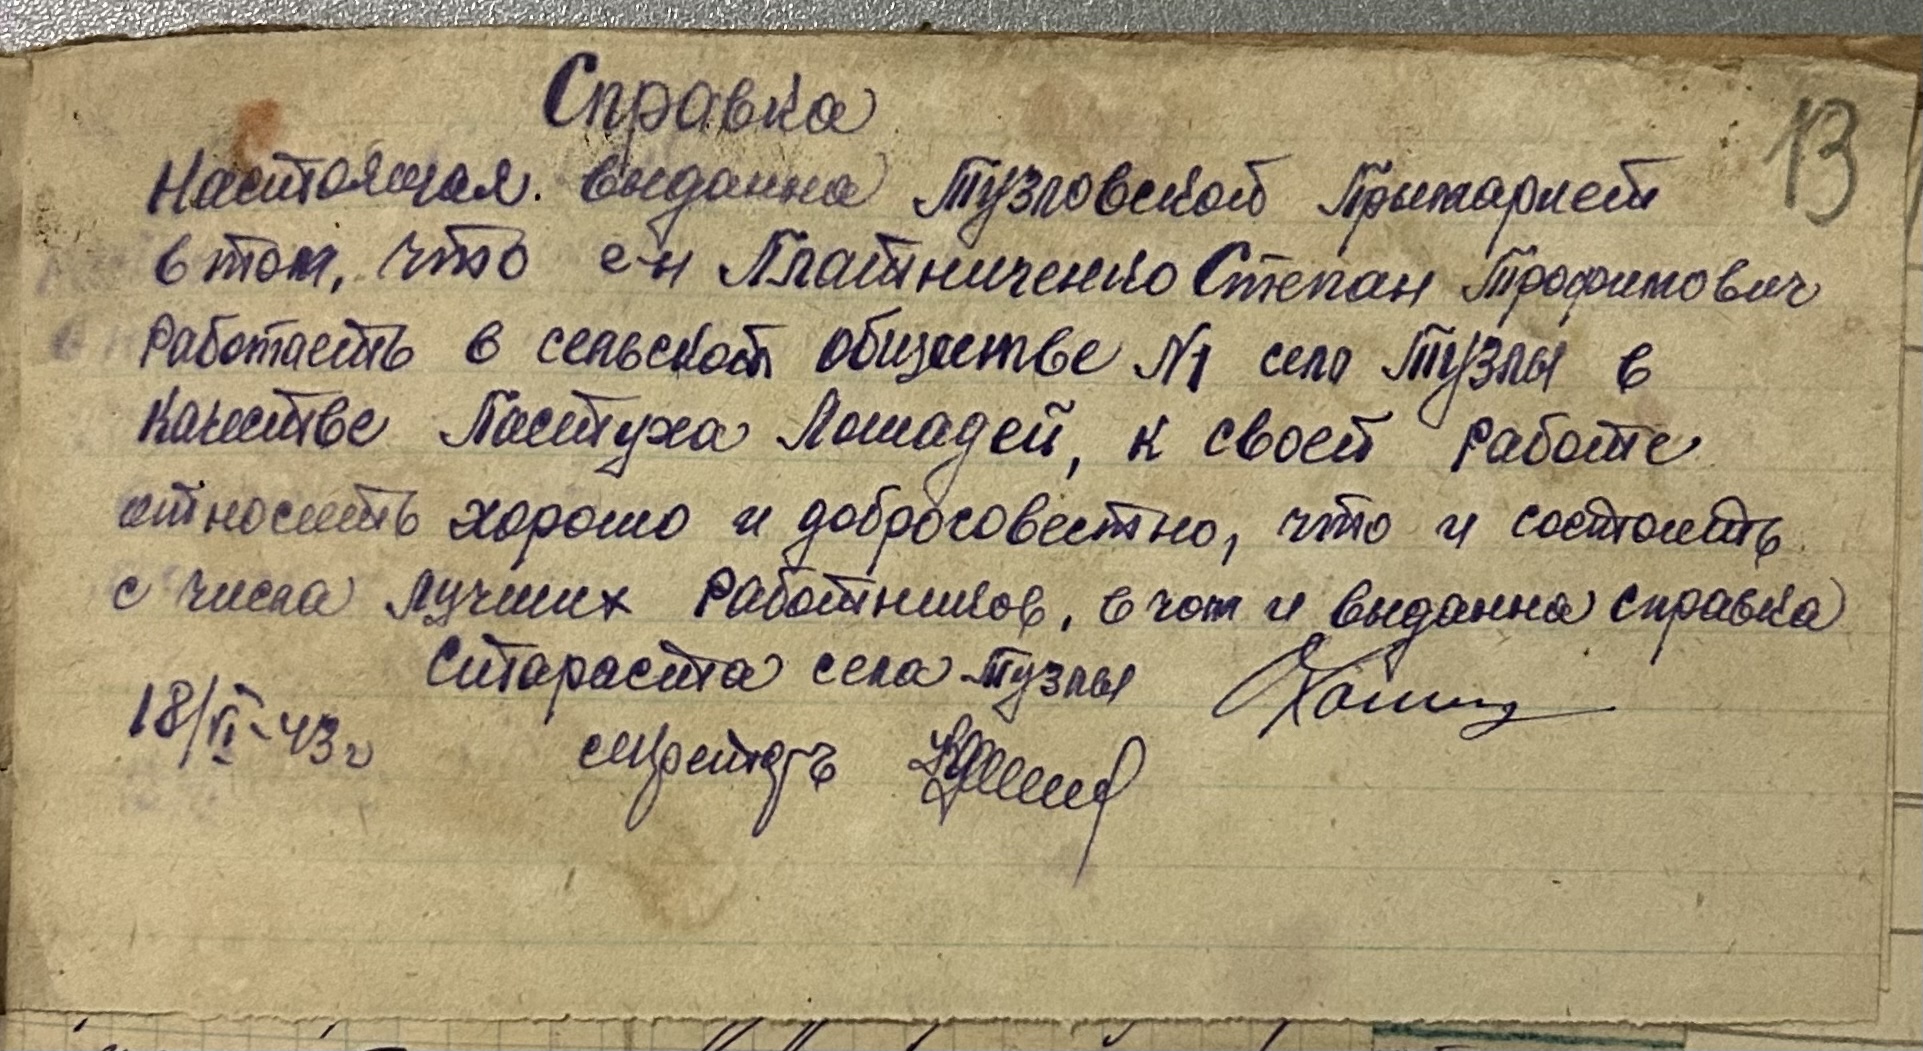 Справка
13
Настоящая выданна Тузловской Примарией
в том, что г-н Платниченко Степан Трофимович
Работаеть в сельском обществе №1 село Тузлы в
Качестве Пастуха Лошадей, к своей Работе
относить хорошо и добросовестно, что и состоить
с числа лучших Работников, в чом и выданна справка
Стараста села Тузлы
18/VI-43г
секретарь